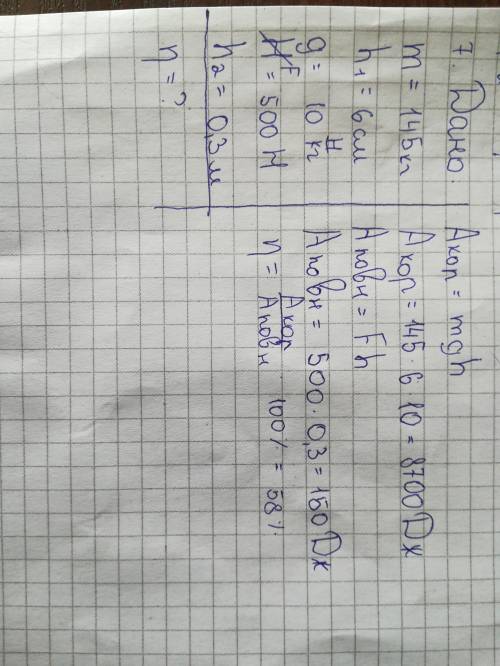 7. Дано:
m = 145кг
h₁ = 6см
g = 10 Н/кг
F = 500 Н
h₂ = 0,3м
η = ?
Акор = mgh
Акор = 145 · 6 10 = 8700Дж
Аповн = Fh
Аповн = 500 · 0,3 = 150Дж
η = Акор/Аповн 100% = 58%